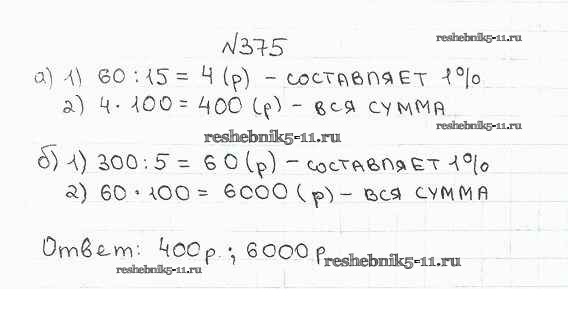 №375
reshebnik5-11.ru
а) 1) 60 : 15 = 4 (р) – составляет 1%
2) 4 · 100 = 400 (р) – вся сумма
reshebnik5-11.ru
reshebnik5-11.ru
б) 1) 300 : 5 = 60 (р) – составляет 1%
2) 60 · 100 = 6000 (р) – вся сумма
Ответ: 400 р. ; 6000 р
reshebnik5-11.ru
reshebnik5-11.ru